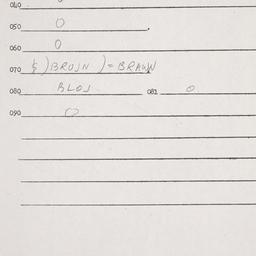 040
050 0
060 0
070 & ) BROJN ) = BRAWN
080 BLOJ 081 0
090 0